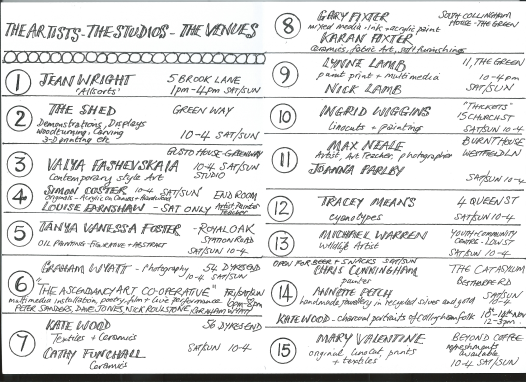 THE ARTISTS - THE STUDIOS - THE VENUES
1 JEAN WRIGHT 5 BROOK LANE
'Allsorts' 1pm-4pm SAT/SUN
2 THE SHED GREEN WAY
Demonstrations, Displays
woodturning, Carving
3-D printing etc 10-4 SAT/SUN
GUSTO HOUSE - GREENWAY
3 VALYA PASHEVSKAIA 10-4 SAT/SUN
Contemporary style Art STUDIO
4 SIMON COSTER 10-4 SAT/SUN END ROOM
originals - Acrylic on Canvas +
LOUISE EARNSHAW - SAT ONLY Artist, Painter Teacher
5 TANYA VANESSA FOSTER - ROYAL OAK
STATION ROAD
OIL PAINTING - FIGURATIVE + ABSTRACT SAT/SUN 10-4
GRAHAM WYATT - Photography 54 DYKES END
10-4 SAT/SUN
6 "THE ASCENDANCY ART CO-OPERATIVE" FRI/SAT/SUN
multimedia installation, poetry, film + live performance 6pm-8pm
PETER SANDERS, DAVE JONES, NICK ROULSTONE, GRAHAM WYATT
7 KATE WOOD 56 DYKES END
Textiles + Ceramics
CATHY FUNCHALL SAT/SUN 10-4
Ceramics
8 GARY FIXTER SOUTH COLLINGHAM
mixed media - ink + acrylic paint HOUSE - THE GREEN
KARAN FIXTER
Ceramics, Fabric Art, soft furnishings
9 LYNNE LAMB 11, THE GREEN
paint print + multimedia 10-4pm
NICK LAMB SAT/SUN
10 INGRID WIGGINS "THICKETS"
15 CHURCH ST
Linocuts + paintings SAT/SUN 10-4
11 MAX NEALE BURNT HOUSE
Artist, Art Teacher, photographer WESTFIELD LN
JOANNA PARLBY
SAT/SUN 10-4
12 TRACEY MEANS 4 QUEEN ST
cyanotypes SAT/SUN 10-4
13 MICHAEL WARREN YOUTH + COMMUNITY
Wildlife Artist CENTRE - LOW ST
SAT/SUN 10-4
OPEN FOR BEER + SNACKS SAT/SUN
14 CHRIS CUNNINGHAM THE CAT ASYLUM
painter BESTHORPE RD
ANNETTE PETCH SAT/SUN
handmade jewellery in recycled silver and gold 10-4
KATE WOOD - charcoal portraits of Collingham folk 18th-14th Nov
12-3pm
15 MARY VALENTINE BEYOND COFFEE
original, linocut, prints refreshments available
+ textiles 10-4 SAT/SUN